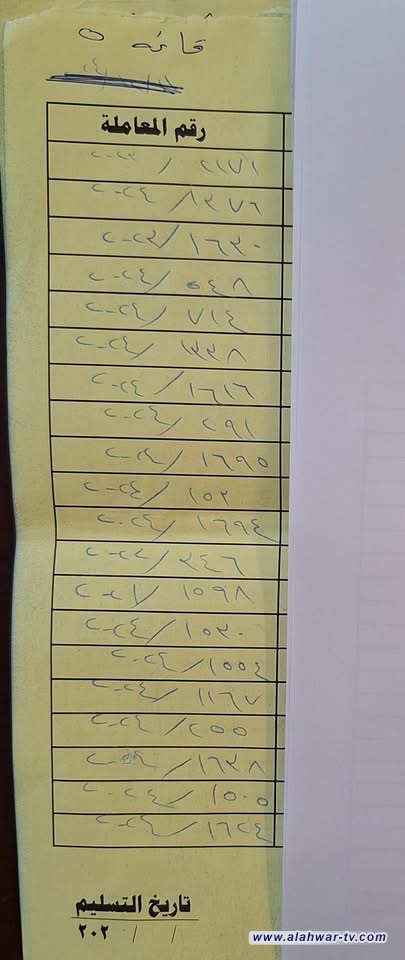 قائمة ٥
رقم المعاملة
٢١٧١ / ٢٠٢٣
١٣٧٦ / ٢٠٢٤
١٦٣٠ / ٢٠٢٣
٥٤٨ / ٢٠٢٤
٧١٤ / ٢٠٢٤
١٣٣٨ / ٢٠٢٤
١٦١٦ / ٢٠٢٤
٢٩١ / ٢٠٢٤
١٦٩٥ / ٢٠٢٤
١٥٢ / ٢٠٢٤
١٦٩٤ / ٢٠٢٤
٢٤٦ / ٢٠٢٢
١٥٩٨ / ٢٠٢١
١٥٣٠ / ٢٠٢٤
١٥٥٤ / ٢٠٢٤
١١٦٧ / ٢٠٢٤
٢٥٥ / ٢٠٢٤
١٦٣٨ /
١٥٠٥ / ٢٠٢٤
١٦٢٤ / ٢٠٢٤
تاريخ التسليم
/ / ٢٠٢
www.alahwar-tv.com